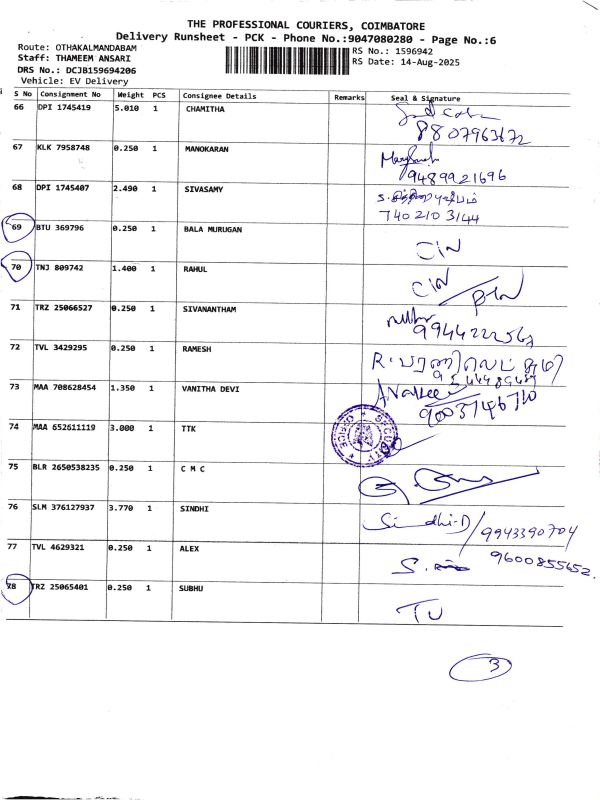 THE PROFESSIONAL COURIERS, COIMBATORE
Delivery Runsheet - PCK - Phone No.:9047080280 - Page No.:6
Route: OTHAKALMANDABAM
RS No.: 1596942
Staff: THAMEEM ANSARI
RS Date: 14-Aug-2025
DRS No.: DCJB159694206
Vehicle: EV Delivery
S No Consignment No Weight PCS Consignee Details Remarks Seal & Signature
66 DPI 1745419 5.010 1 CHAMITHA
8807963672
67 KLK 7958748 0.250 1 MANOKARAN
9489921696
68 DPI 1745407 2.490 1 SIVASAMY
740 210 3144
69 BTU 369796 0.250 1 BALA MURUGAN
CIN
70 TNJ 809742 1.400 1 RAHUL
CIN
71 TRZ 25066527 0.250 1 SIVANANTHAM
72 TVL 3429295 0.250 1 RAMESH
73 MAA 708628454 1.350 1 VANITHA DEVI
9003746710
74 MAA 652611119 3.000 1 TTK
SECURITY OFFICE
75 BLR 2650538235 0.250 1 C M C
76 SLM 376127937 3.770 1 SINDHI
Sindhi-D/9943390704
77 TVL 4629321 0.250 1 ALEX
9600855652.
78 TRZ 25065401 0.250 1 SUBHU
TU
3